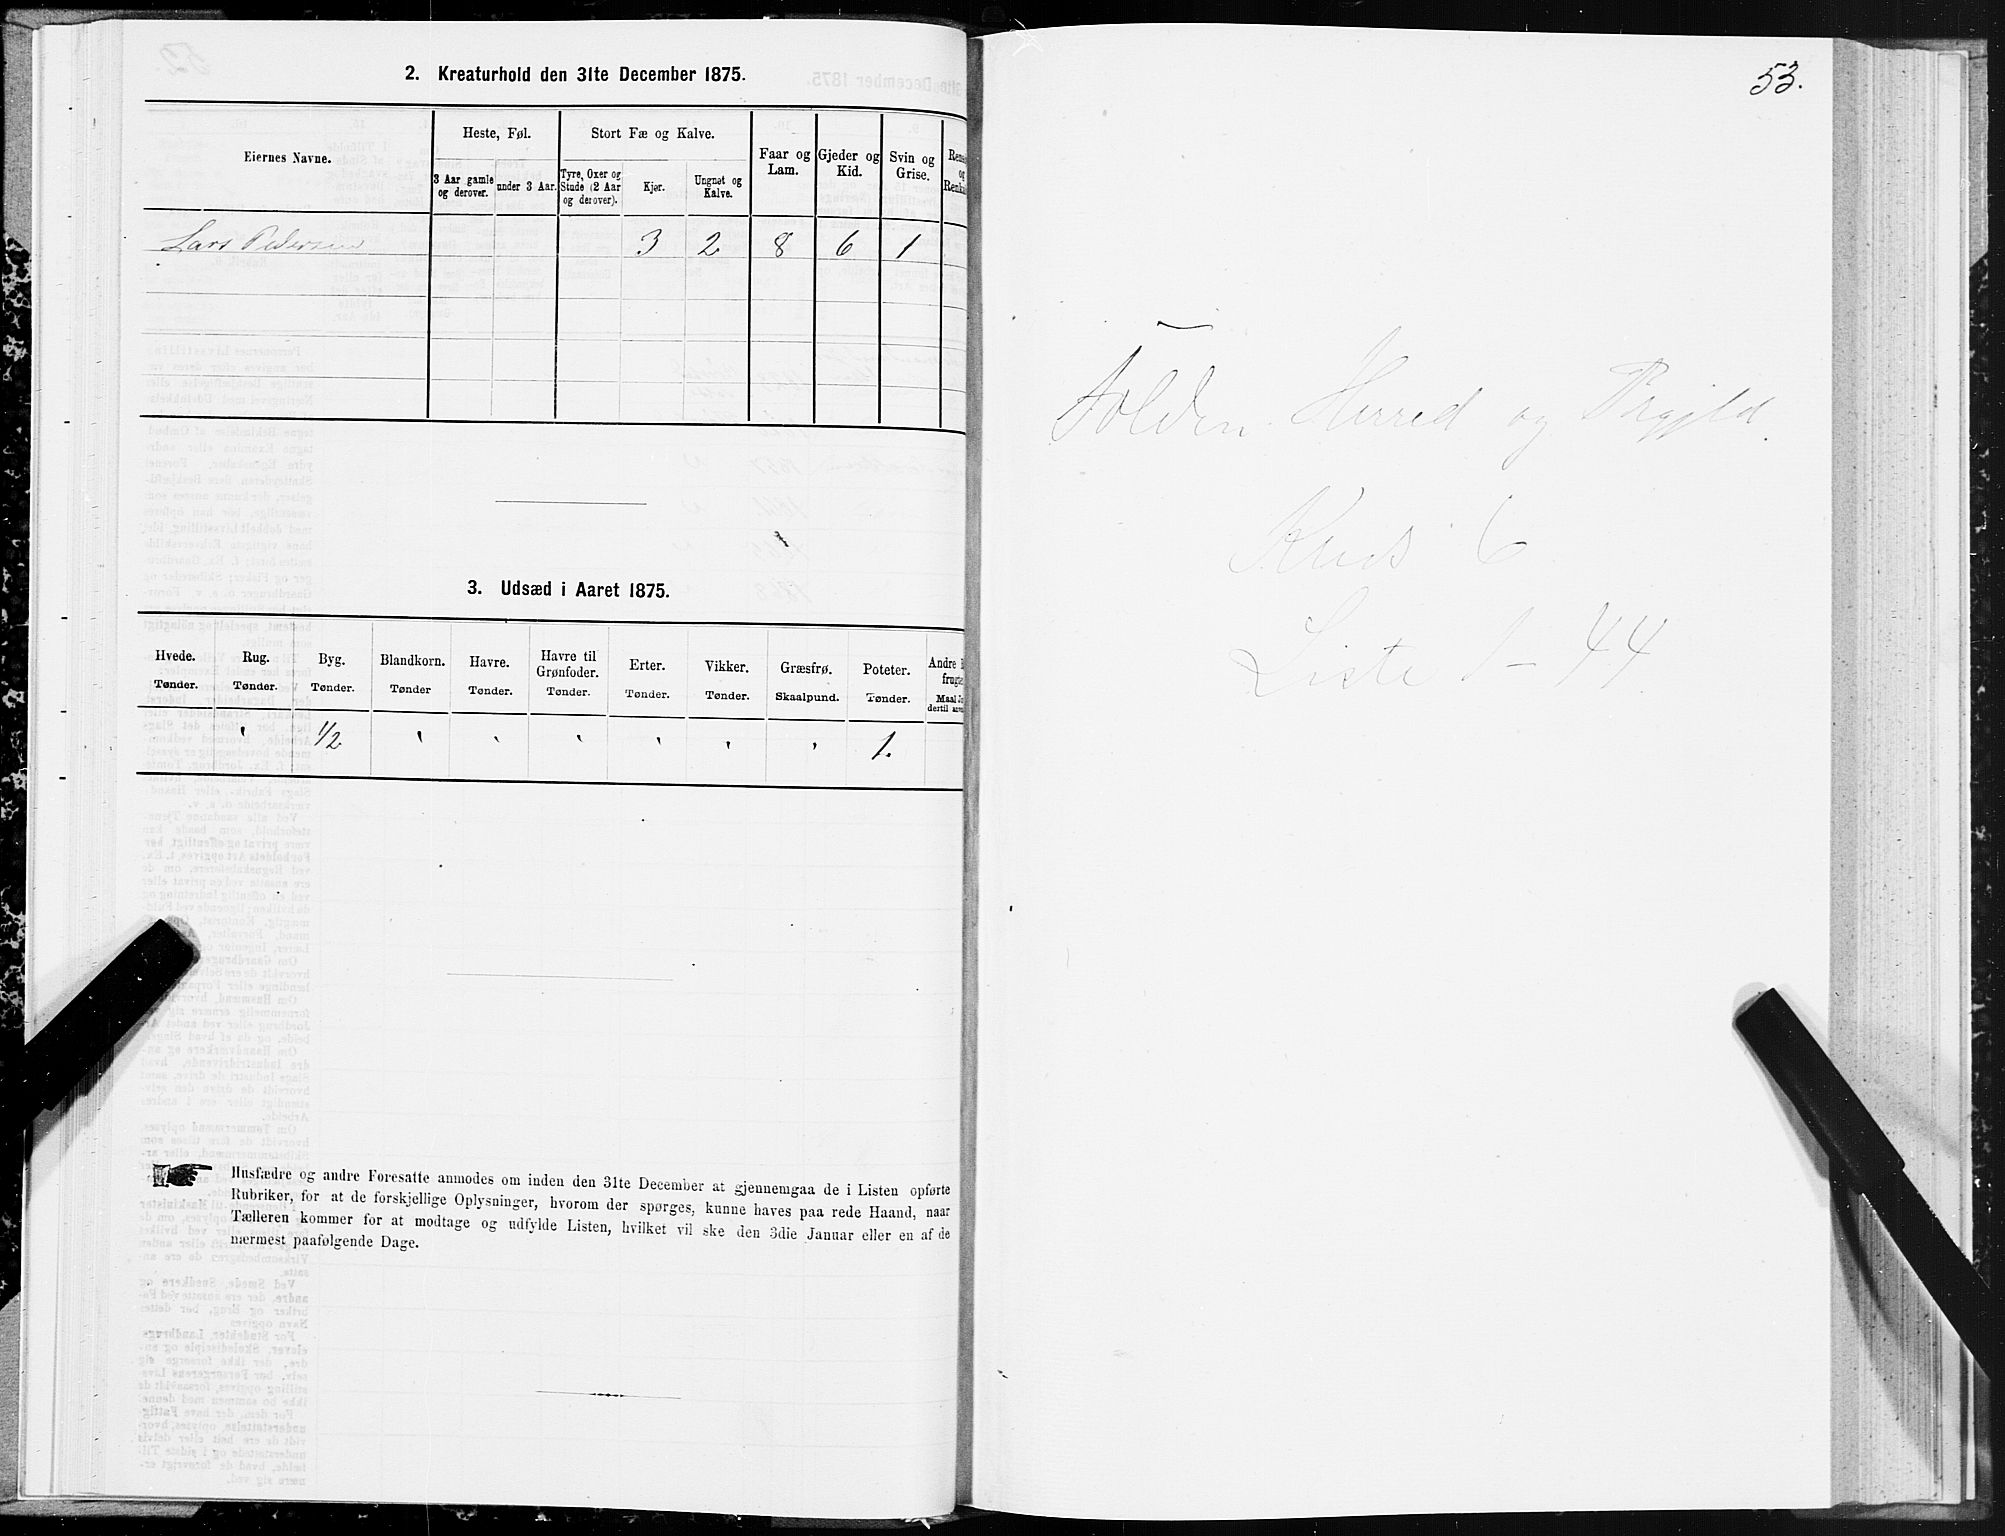 2. Kreaturhold den 31te December 1875.
Eiernes Navne.
Heste, Føl.
Stort Fæ og Kalve.
Faar og Lam.
Gjeder og Kid.
Svin og Grise.
3 Aar gamle og derover.
under 3 Aar.
Tyre, Oxer og Stude (2 Aar og derover).
Kjør.
Ungnøt og Kalve.
Lars Pedersen 3 2 8 6 1
3. Udsæd i Aaret 1875.
Hvede. Rug. Byg. Blandkorn. Havre. Havre til Grønfoder. Erter. Vikker. Græsfrø. Poteter.
Tønder. Tønder. Tønder. Tønder Tønder. Tønder. Tønder. Tønder. Skaalpund. Tønder.
" 1/2 " " " " " " 1.
Husfædre og andre Foresatte anmodes om inden den 31te December at gjennemgaa de i Listen opførte
Rubriker, for at de forskjellige Oplysninger, hvorom der spørges, kunne haves paa rede Haand, naar
Tælleren kommer for at modtage og udfylde Listen, hvilket vil ske den 3die Januar eller en af de
nærmest paafølgende Dage.
53.
Folden Herred og Prgjld.
Kreds 6
Liste 1-44